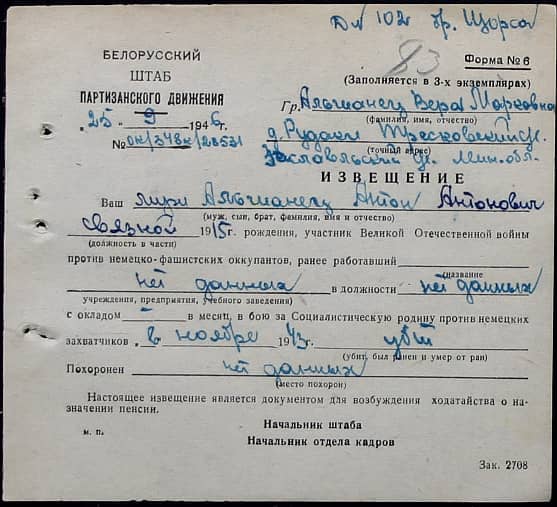 Дл 102 бр. Щорса
83
Форма № 6
БЕЛОРУССКИЙ
ШТАБ
ПАРТИЗАНСКОГО ДВИЖЕНИЯ
(Заполняется в 3-х экземплярах)
Гр. Альшанец Вера Марковна
(фамилия, имя, отчество)
„25“ 9 1946г.
№ ок/348к/28531
д. Рудаки
(точный адрес)
Заславльский Мин. обл.
ИЗВЕЩЕНИЕ
Ваш муж Альшанец Антон Антонович
(муж, сын, брат, фамилия, имя и отчество)
связной 1915г. рождения, участник Великой Отечественной войны
(должность в части)
против немецко-фашистских оккупантов, ранее работавший
(название
нет данных в должности нет данных
учреждения, предприятия, учебного заведения)
с окладом — в месяц, в бою за Социалистическую родину против немецких
захватчиков „ ноябре 1943г. убит
(убит, был ранен и умер от ран)
Похоронен нет данных
(место похорон)
Настоящее извещение является документом для возбуждения ходатайства о на-
значении пенсии.
м. п.
Начальник штаба
Начальник отдела кадров
Зак. 2708